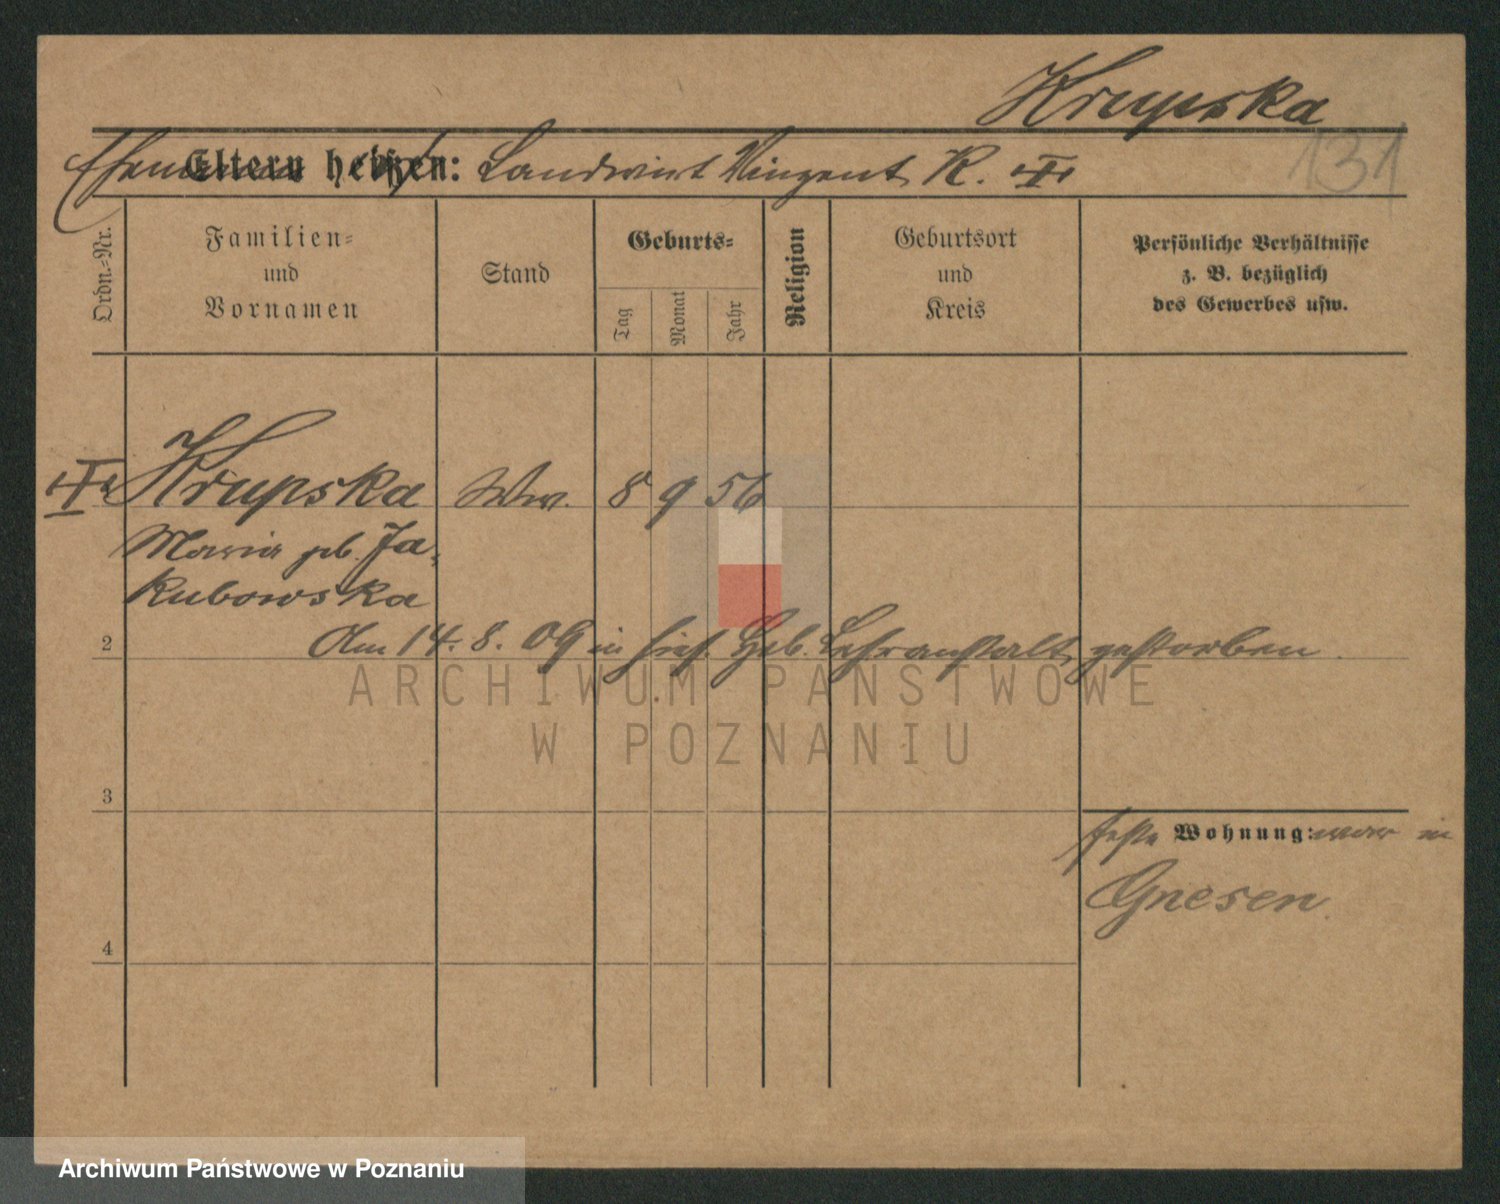 Krupska
131
Eltern heißen: Landwirt Vinzent K.
Ordn.-Nr.
Familien-
und
Vornamen
Stand
Geburts-
Tag
Monat
Jahr
Religion
Geburtsort
und
Kreis
Persönliche Verhältnisse
z. B. bezüglich
des Gewerbes usw.
Krupska Ww. 8 9 56
Maria geb. Ja-
kubowska
2
Am 14. 8. 09 in hies. Heb. Lehranstalt gestorben.
ARCHIWUM PAŃSTWOWE
W POZNANIU
3
feste Wohnung: war in
Gnesen.
4
Archiwum Państwowe w Poznaniu